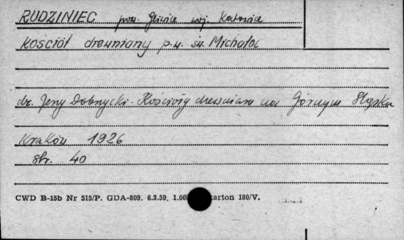 RUDZINIEC pow. Gliwice woj. Katowice
kościół drewniany p.w. św. Michała
dr. Jerzy Dobrzycki - Kościoły drewniane na Górnym Śląsku
Kraków 1926
str. 40
CWD B-15b Nr 315/P. GDA-809. 6.3.59. 1.00 karton 180/V.